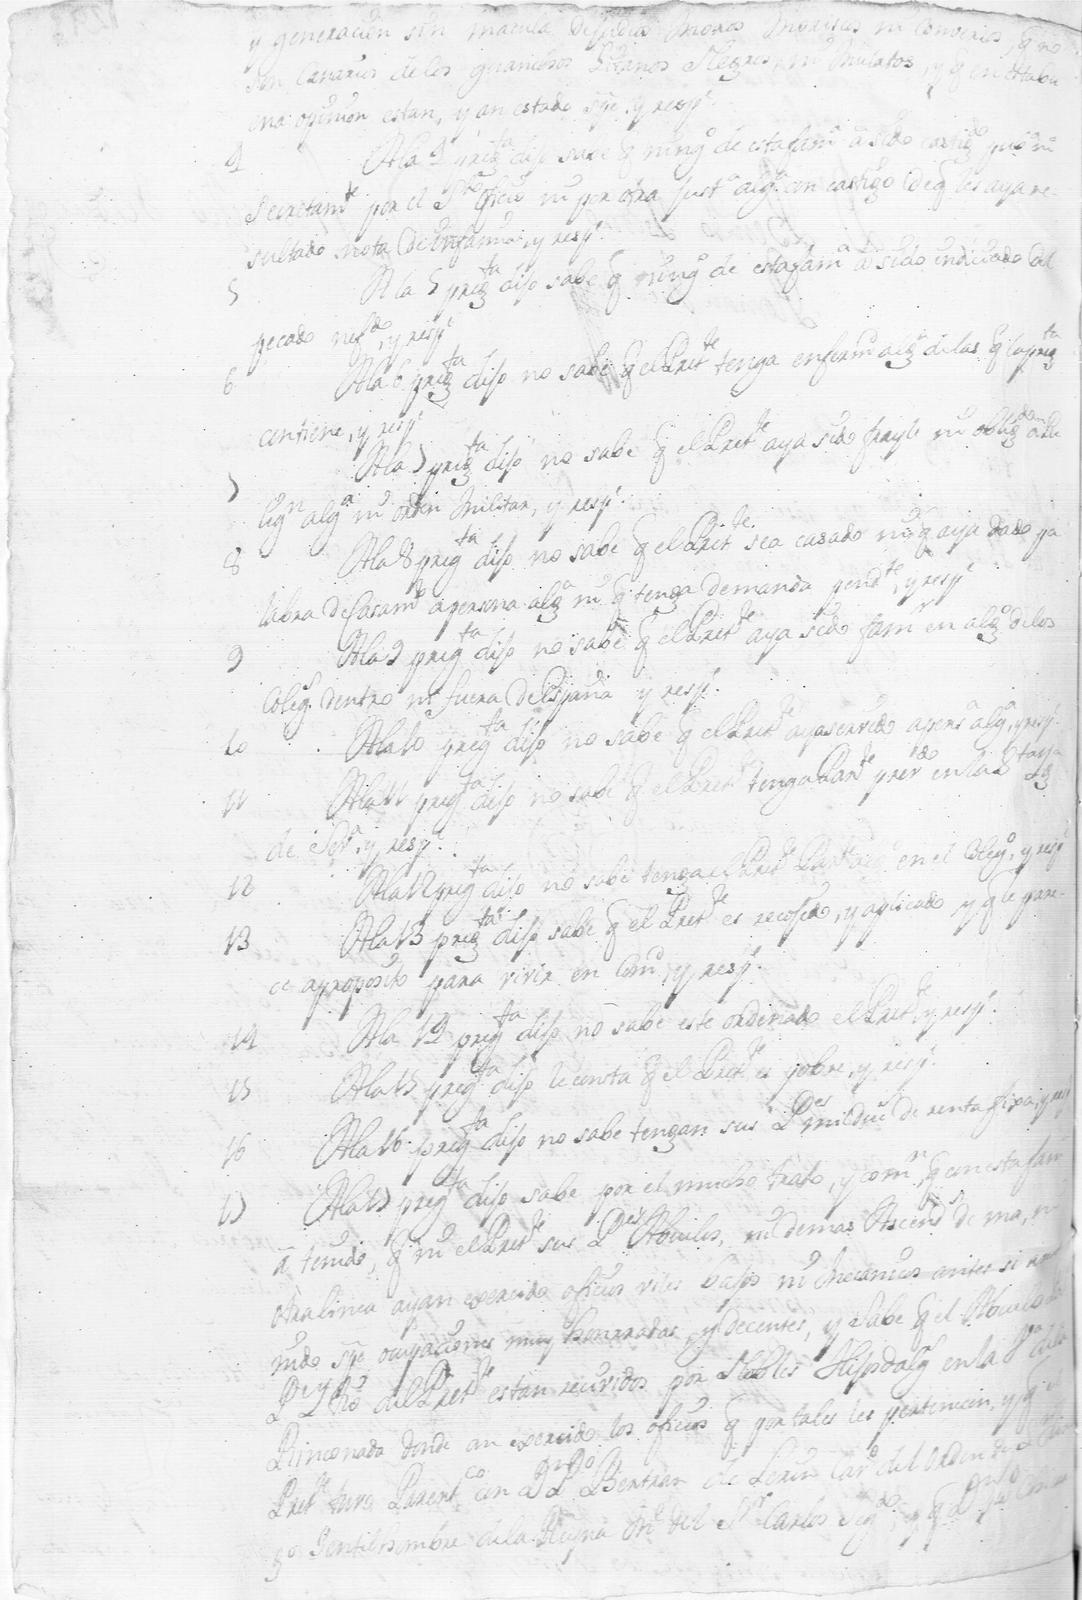 y generacion sin macula de Judios Moros Moriscos ni Conversos, q no
son Canarios de los guanchosos Gitanos Negros, ni Mulatos, y q en esta bu
ena opinion estan, y an estado spe. y resp.e
4 A la 4 preg.ta dijo save q ning.o de esta fam.a a sido castig.do pub.ca ni
Secretam.te por el S.to Oficio ni por otra just.a alg.a con castigo de q les aya re-
sultado nota de infamia, y resp.e
5 A la 5 preg.ta dijo sabe q ning.o de esta fam.a a sido indiciado del
pecado nef.do, y resp.e
6 A la 6 preg.ta dijo no sabe q el Pret.te tenga enferm.d alg.a de las q la preg.ta
contiene, y resp.e
7 A la 7 preg.ta dijo no sabe q el Pret.te aya sido frayle ni oblig.do a Re
lig.n alg.a ni orden Militar, y resp.e
8 A la 8 preg.ta dijo no sabe q el Pret.te sea casado ni q aya dado pa
labra de Casam.to a persona alg.a ni q tenga demanda pend.te, y resp.e
9 A la 9 preg.ta dijo no sabe q el Pret.te aya sido fam.r en alg.o de los
Coleg.s dentro ni fuera de España y resp.e
10 A la 10 preg.ta dijo no sabe q el Pret.te aya servido a pers.a alg.a, y resp.e
11 A la 11 preg.ta dijo no sabe q el Pret.te tenga Par.te en la
de y resp.e
12 A la 12 preg.ta dijo no sabe tenga el Pret.te Parient.e en el Coleg.o, y resp.e
13 A la 13 preg.ta dijo sabe q el Pret.te es recojido, y aplicado y q le pare-
ce aproposito para vivir en Com.d, y resp.e
14 A la 14 preg.ta dijo no sabe este ordenado el Pret.te y resp.e
15 A la 15 preg.ta dijo le consta q el Pret.te es pobre, y resp.e
16 A la 16 preg.ta dijo no sabe tengan sus P.es mil duc.s de renta fixa, y resp.e
17 A la 17 preg.ta dijo sabe por el mucho trato, y com.n q con esta fam.a
a tenido, q ni el Pret.te sus P.es Abuelos, ni demas Ascend.s de una, ni
otra linea ayan exercido oficios viles bajos ni Mecanicos antes si an te
nido spe ocupaciones muy honrradas, y decentes, y sabe q el Abuelo
P.e y tio del Pret.te estan recividos por Nobles Hijosdalgo en la V.a de la
Rinconada donde an exercido los oficios q por tales les pertenecen, y q el
Pret.te tuvo Parent.co con D.n P.o Bertran de Lerin Cav.o del orden de
y.o Gentilhombre de la Reyna M.e del S.r Carlos Seg.do, y q D.n